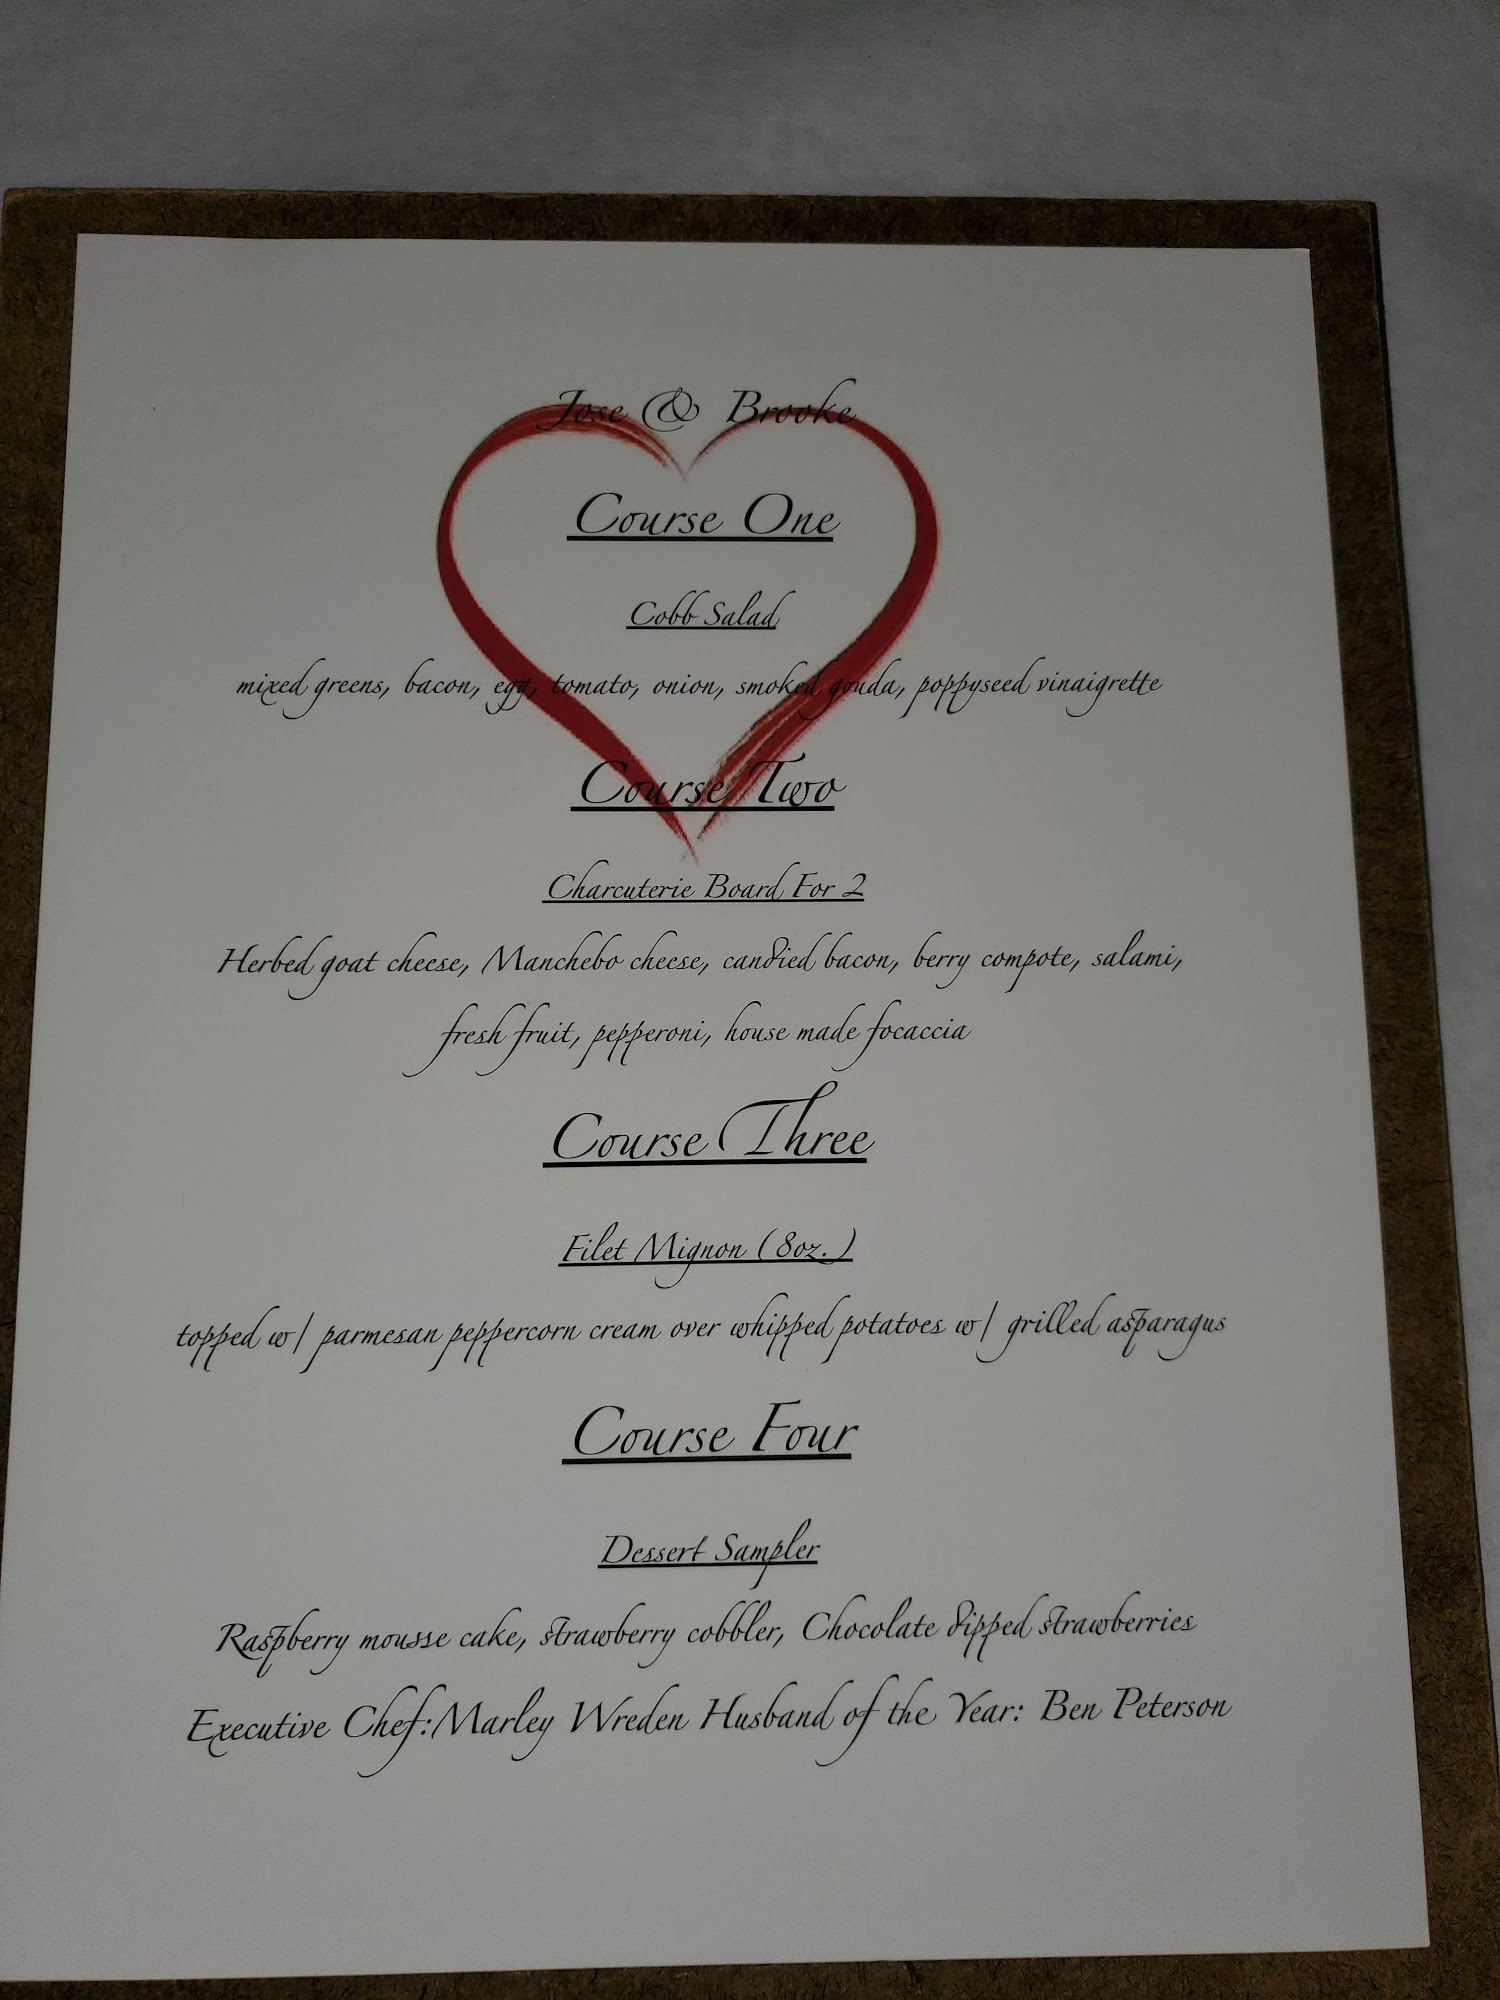 Jose & Brooke
Course One
Cobb Salad
mixed greens, bacon, egg, tomato, onion, smoked gouda, poppyseed vinaigrette
Course Two
Charcuterie Board For 2
Herbed goat cheese, Manchebo cheese, candied bacon, berry compote, salami,
fresh fruit, pepperoni, house made focaccia
Course Three
Filet Mignon (8oz.)
topped w/ parmesan peppercorn cream over whipped potatoes w/ grilled asparagus
Course Four
Dessert Sampler
Raspberry mousse cake, strawberry cobbler, Chocolate dipped strawberries
Executive Chef:Marley Wreden Husband of the Year: Ben Peterson